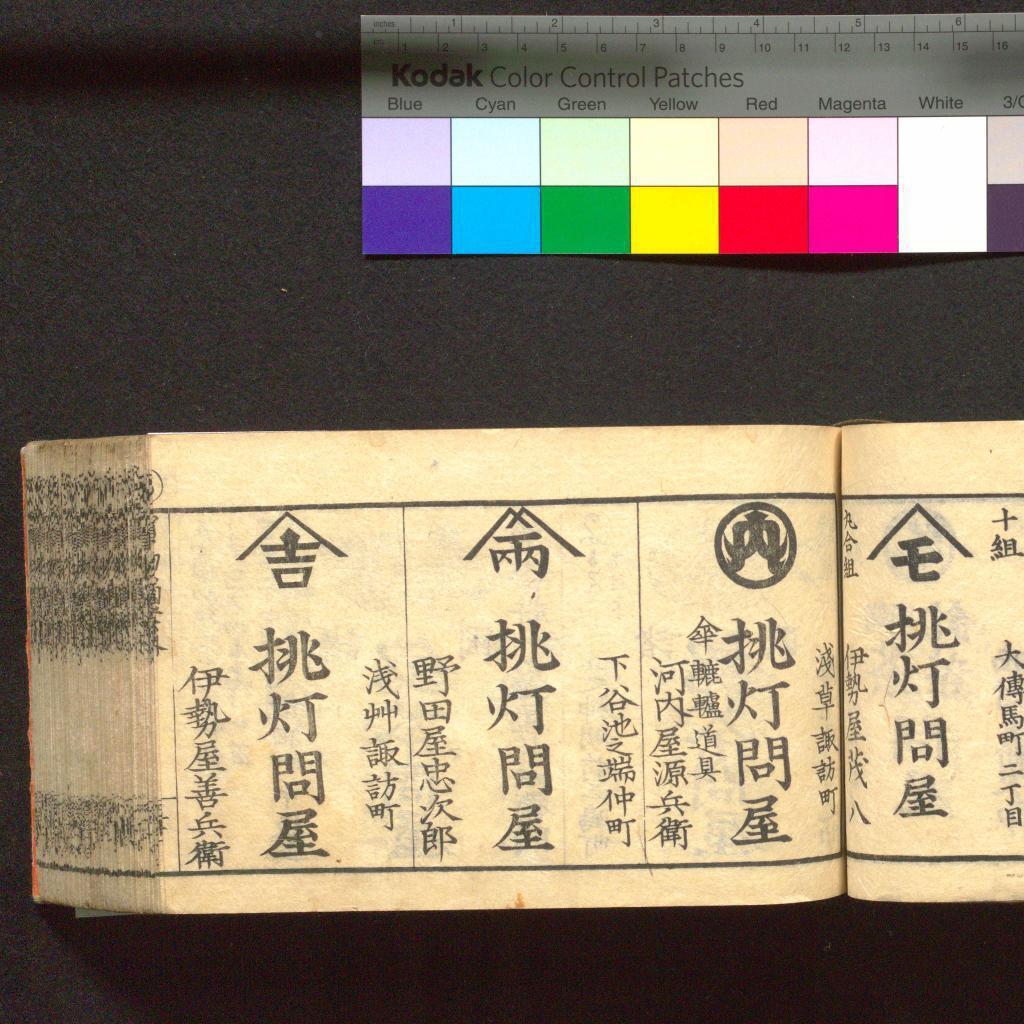 inches 1 2 3 4 5 6
cm 1 2 3 4 5 6 7 8 9 10 11 12 13 14 15 16
Kodak Color Control Patches
Blue Cyan Green Yellow Red Magenta White
十組
大傳馬町二丁目
モ
挑灯問屋
丸合組
伊勢屋茂八
淺草諏訪町
丙
挑灯問屋
傘轆轤道具
河内屋源兵衛
下谷池之端仲町
兩
挑灯問屋
野田屋忠次郎
浅艸諏訪町
吉
挑灯問屋
伊勢屋善兵衛